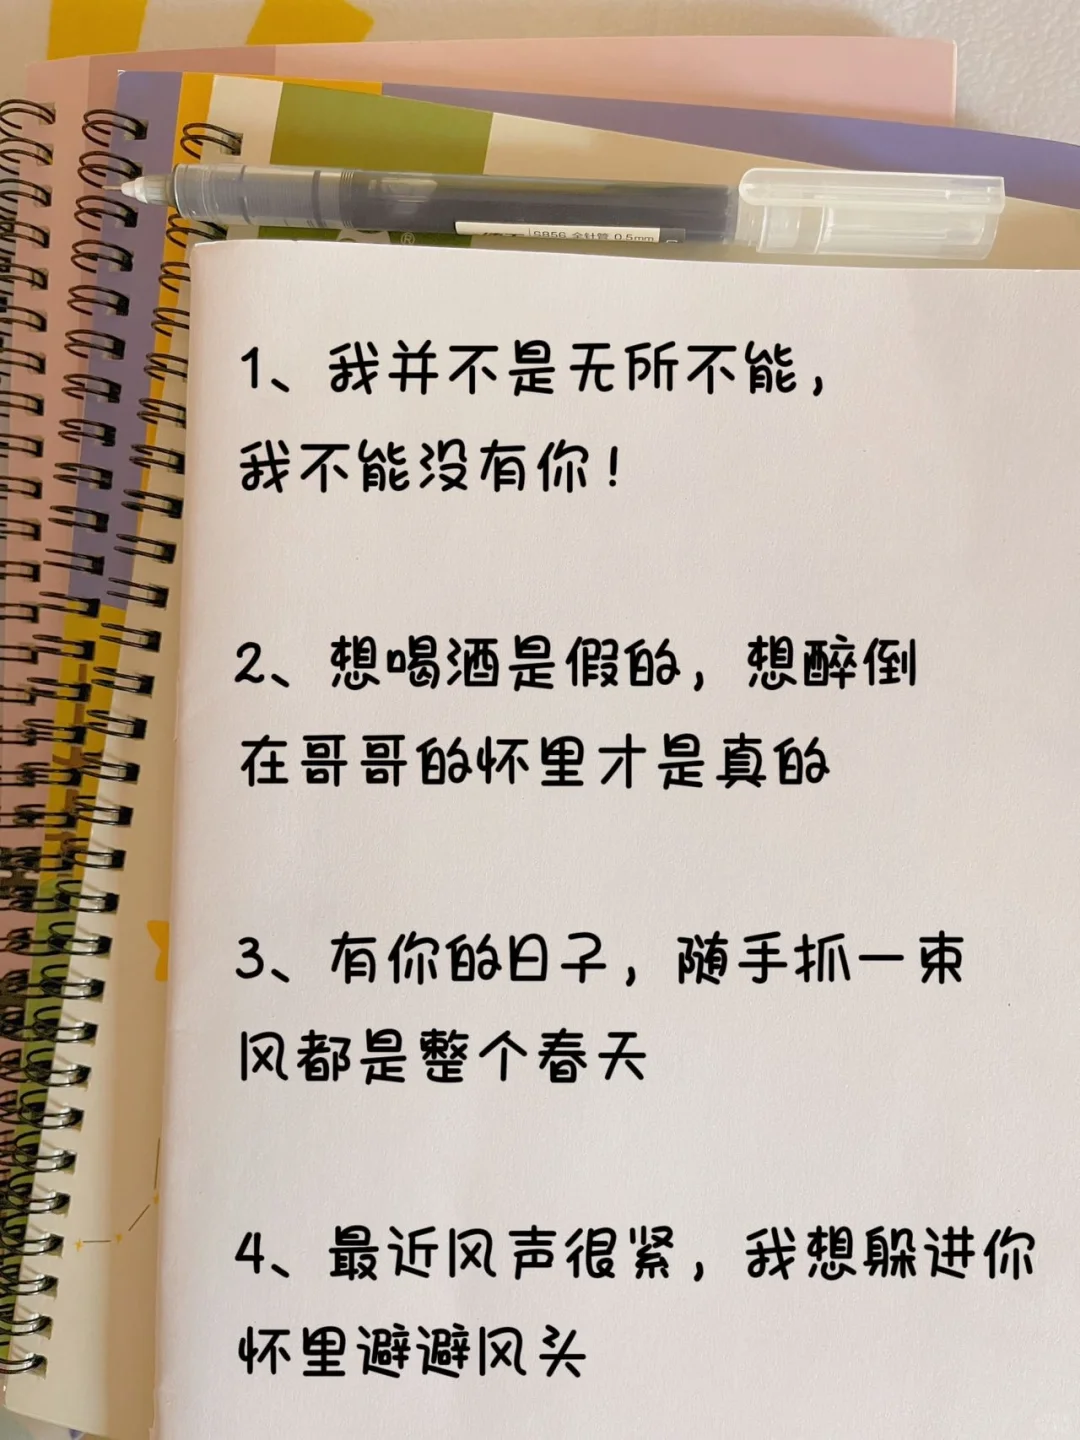 S856 全针管 0.5mm
®
1、我并不是无所不能，
我不能没有你！
2、想喝酒是假的，想醉倒
在哥哥的怀里才是真的
3、有你的日子，随手抓一束
风都是整个春天
4、最近风声很紧，我想躲进你
怀里避避风头